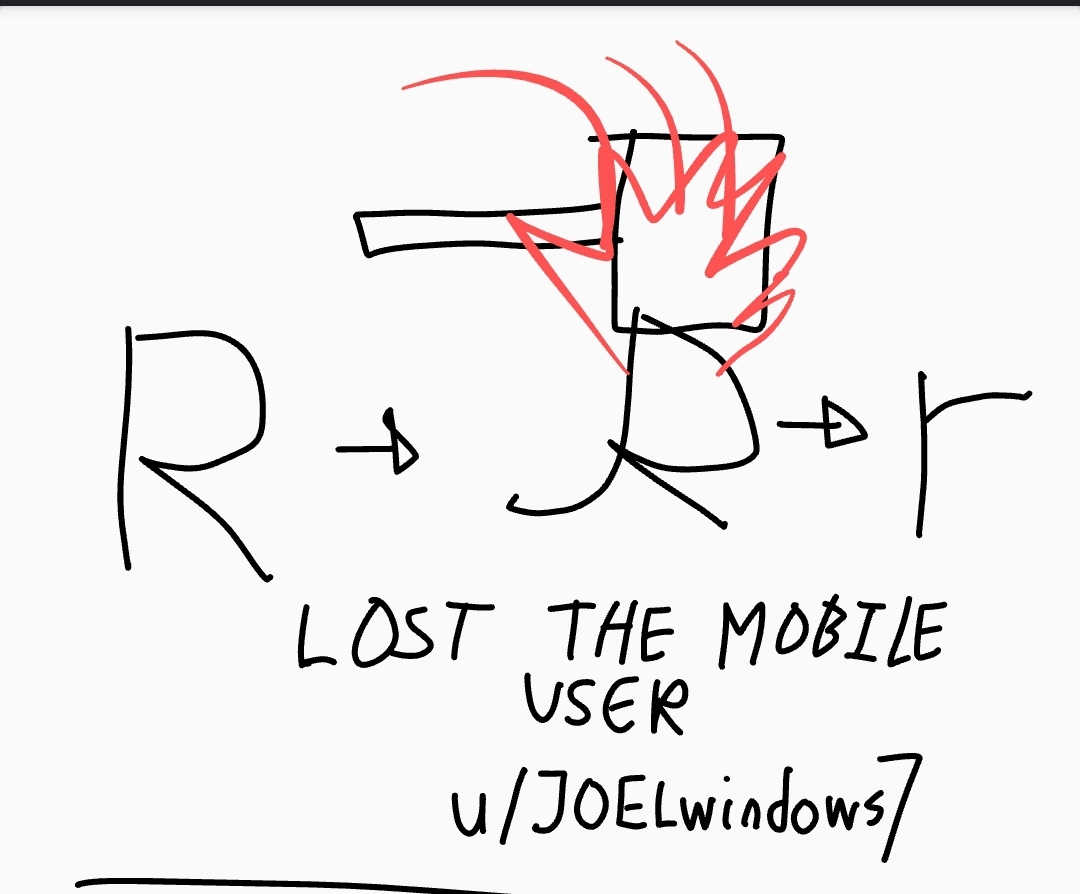 R R r
LOST THE MOBILE
USER
u/JOELwindows7